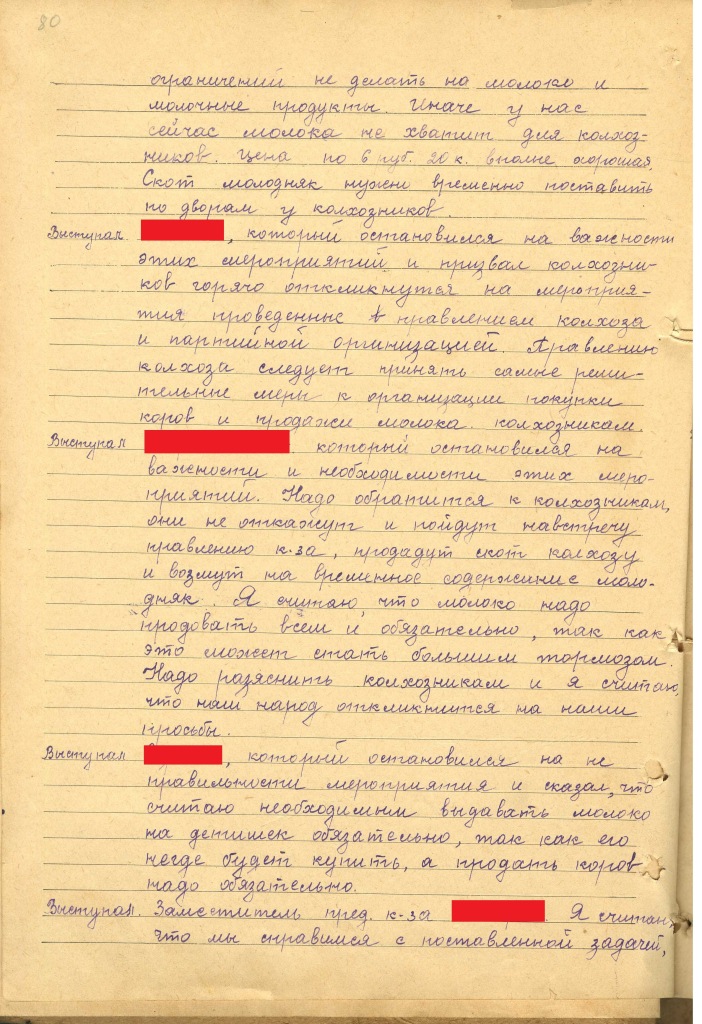 80
ограничений не делать на молоко и
молочные продукты. Иначе у нас
сейчас молока не хватит для колхоз-
ников. Цена по 6 руб. 20 к. вполне хорошая.
Скот молодняк нужно временно поставить
по дворам у колхозников.
Выступал , который остановился на важности
этих мероприятий и призвал колхозни-
ков горячо откликнутся на мероприя-
тия проведенные правлением колхоза
и партийной организацией. Правлению
колхоза следует принять самые реши-
тельные меры к организации покупки
коров и продажи молока колхозникам.
Выступал который остановился на
важности и необходимости этих меро-
приятий. Надо обратится к колхозникам,
они не откажут и пойдут навстречу
правлению к-за, продадут скот колхозу
и возмут на временное содержание моло-
дняк. Я считаю, что молоко надо
продовать всем и обязательно, так как
это может стать большим тормозом.
Надо разяснить колхозникам и я считаю,
что наш народ откликнится на наши
просьбы.
Выступал , который остановился на не
правильности мероприятия и сказал, что
считаю необходимым выдавать молоко
на детишек обязательно, так как его
негде будет купить, а продать коров
надо обязательно.
Выступал. Заместитель пред. к-за Я считаю,
что мы справимся с поставленной задачей,